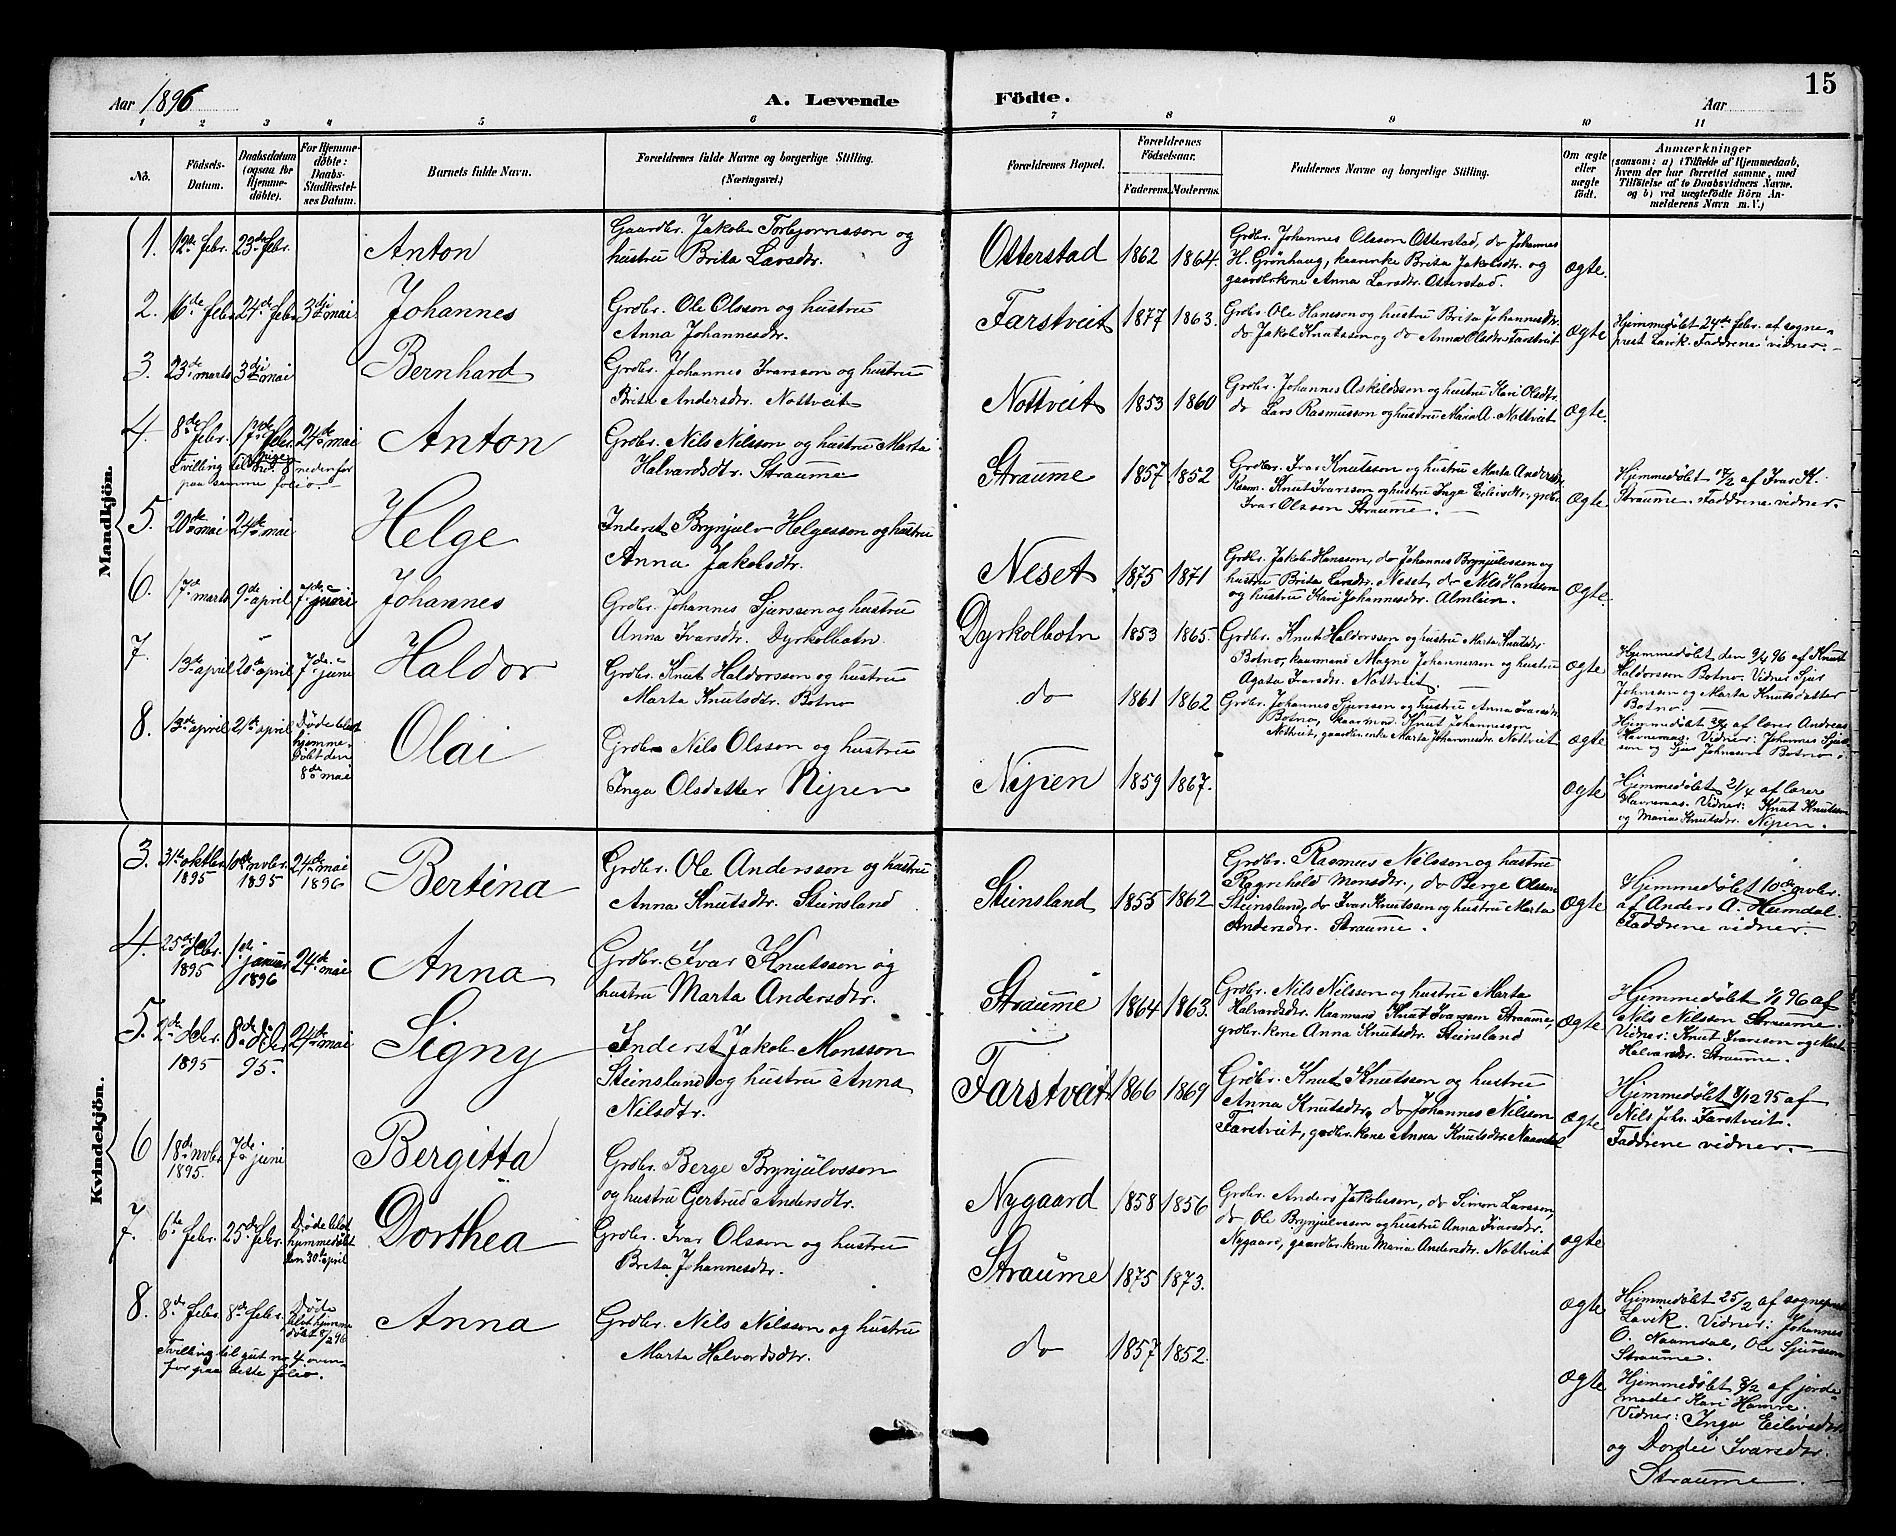 Aar 1896
A. Levende
Födte.
Aar
15
1 2 3 4 5 6 7 8 9 10 11
No.
Födsels-
Datum.
Daabsdatum
(ogsaa for
Hjemme-
döbte).
For Hjemme-
döbte:
Daabs-
Stadfæstel-
ses Datum.
Barnets fulde Navn.
Forældrenes fulde Navne og borgerlige Stilling.
(Næringsvei.)
Forældrenes Bopæl.
Forældrenes
Födselsaar.
Faderens. Moderens.
Faddernes Navne og borgerlige Stilling.
Om ægte
eller
uægte
födt.
Anmærkninger
(saasom: a) i Tilfælde af Hjemmedaab,
hvem der har forrettet samme, med
Tilföielse af to Daabsvidners Navne.
og b) ved uægtefödte Börn An-
melderens Navn m. V.)
Mandkjön.
1. 12te febr. 23de febr.
Anton
Gaardbr. Jakob Torbjørnsson og
hustru Brita Larsdtr.
Otterstad 1862 1864.
Grdbr. Johannes Olsson Otterstad, do Johannes
H. Grönhaug, kaarenke Brita Jakobsdtr. og
gaardbrkone Anna Larsdtr. Otterstad.
Ægte.
2. 16de febr. 24de febr. 3dje mai
Johannes
Grdbr. Ole Olsson og hustru
Anna Johannesdtr.
Farstveit 1877 1863.
Grdbr. Ole Hansson og hustru Brita Johannesdtr.
do Jakob Knutsson og do Anna Olsdtr. Farstveit
Ægte
Hjemmedøbt 24de febr. af sogne-
prest Lavik. Faddrene vidner.
3. 23de marts 3dje mai
Bernhard
Grdbr. Johannes Ivarsson og hustru
Brita Andersdtr. Nottveit
Nottveit 1853 1860
Grdbr. Johannes Askildsson og hustru Kari Olsdtr.
do Lars Rasmusson og hustru Maria A. Nottveit
Ægte.
4. 8de febr. 17de febr. 24de mai
Tvilling til pige no. 8 nedenfor
paa samme folio.
Anton
Grdbr. Nils Nilsson og hustru Marta
Halvardsdtr. Straume
Straume 1857 1852
Grdbr. Ivar Knutsson og hustru Marta Andersdtr.
Kaarm. Knut Ivarsson og hustru Inga Eilevsdtr, grdbr.
Ivar Olsson Straume.
Ægte
Hjemmedøbt 17/2 af Ivar K.
Straume. Faddrene vidner.
5. 20de mai 24de mai
Helge
Inderst Brynjulv Helgesson og hustru
Anna Jakobsdtr.
Neset 1875 1871
Grdbr. Jakob Hansson, do Johannes Brynjulvsson og
hustru Brita Larsdtr. Neset, do Nils Hansson
og hustru Kari Johannesdtr. Almlein.
Ægte.
6. 17de marts 9de april 7de juni
Johannes
Grdbr. Johannes Sjursson og hustru
Anna Ivarsdtr. Dyrkolbotn
Dyrkolbotn 1853 1865.
Grdbr. Knut Haldorsson og hustru Marta Knutsdtr
Botno, kaarmand Magne Johannesson og hustru
Agata Ivarsdtr. Nottveit.
Ægte
Hjemmedøbt den 9/4 96 af Knut
Haldorsson Botno. Vidner Sjur
Johnsson og Marta Knutsdatter
Botno.
7. 13de april 20de april 7de juni
Haldor
Grdbr. Knut Haldorsson og hustru
Marta Knutsdtr. Botno
do 1861 1862
Grdbr. Johannes Sjursson og hustru Anna Ivarsdtr.
Botno, kaarmd. Knut Johannesson
Nottveit, gaardkr.enke Marta Johannesdr. Nottveit
Ægte
Hjemmedøbt 20/4 af lærer Andreas
Havneraas. Vidner: Johannes Sjurs-
son og Sjur Johnsson Botno.
8. 13de april 21de april
Døde blot
hjemme-
døbt den
8de mai
Olai
Grdbr Nils Olsson og hustru
Inga Olsdatter Nipen
Nipen 1859 1867.
Ægte
Hjemmedøbt 21/4 af lærer
Havneraas. Vidner: Knut Knutsson
og Maria Knutsdr. Nipen.
Kvindekjön.
3. 31te oktbr. 1895 10de novbr. 1895 24de mai 1896
Bertina
Grdbr. Ole Andersson og hustru
Anna Knutsdtr. Steinsland
Steinsland 1855 1862
Grdbr. Rasmus Nilsson og hustru
Ragnhild Monsdtr., do Berge Olsson
Steinsland, do Ivar Knutsson og hustru Marta
Andersdtr. Straume.
Ægte
Hjemmedøbt 10de novbr.
af Anders A. Heimdal.
Faddrene vidner.
4. 25de decbr. 1895 1de januar 1896 24de mai
Anna
Grdbr. Ivar Knutsson og
hustru Marta Andersdtr.
Straume 1864 1863.
Grdbr. Nils Nilsson og hustru Marta
Halvardsdr. Kaarmand Knut Ivarsson Straume,
grdbr kone Anna Knutsdtr. Steinsland
Ægte
Hjemmedøbt 1/1 96 af
Nils Nilsson Straume.
Vidner: Knut Ivarsson og Marta
Halvardsdtr. Straume.
5. 2de decbr 1895 8de decbr 95. 24de mai
Signy
Inderst Jakob Monsson
Steinsland og hustru Anna
Nilsdtr.
Farstveit 1866 1869
Grdbr. Knut Knutsson og hustru
Anna Knutsdtr, do Johannes Nilsson
Farstveit, grdbr. kone Anna Knutsdtr. Naamdal
Ægte
Hjemmedøbt 8/12 95 af
Nils Johs. Farstveit.
Faddrene vidner.
6 18de novbr 1895. 7de juni
Bergitta
Grdbr. Berge Brynjulvsson
og hustru Gertrud Andersdtr.
Nygaard 1858 1856
Grdbr. Anders Jakobsson, do Simon Larsson,
do Ole Brynjulvsson og hustru Anna Ivarsdtr.
Nygaard, gaardbr.kone Maria Andersdtr. Nottveit
ægte
7. 6te febr. 25de febr.
Døde blot
hjemmedøbt
den 30te april
Dorthea
Grdbr. Ivar Olsson og hustru
Brita Johannesdtr.
Straume 1875 1873.
Ægte
Hjemmedøbt 25/2 af sogneprest
Lavik. Vidner: Johannes
O. Naamdal, Ole Sjursson
Straume.
8. 8de febr. 8de febr.
Døde
blot hjemme
døbt 8/2 96
Tvilling til gut no 4 oven-
for paa dette folio.
Anna
Grdbr. Nils Nilsson og hustru
Marta Halvordsdtr.
do 1857 1852.
Ægte
Hjemmedøbt 8/2 af jorde-
moder Kari Hamre.
Vidner: Inga Eilevsdtr.
og Dordei Ivarsdtr.
Straume.